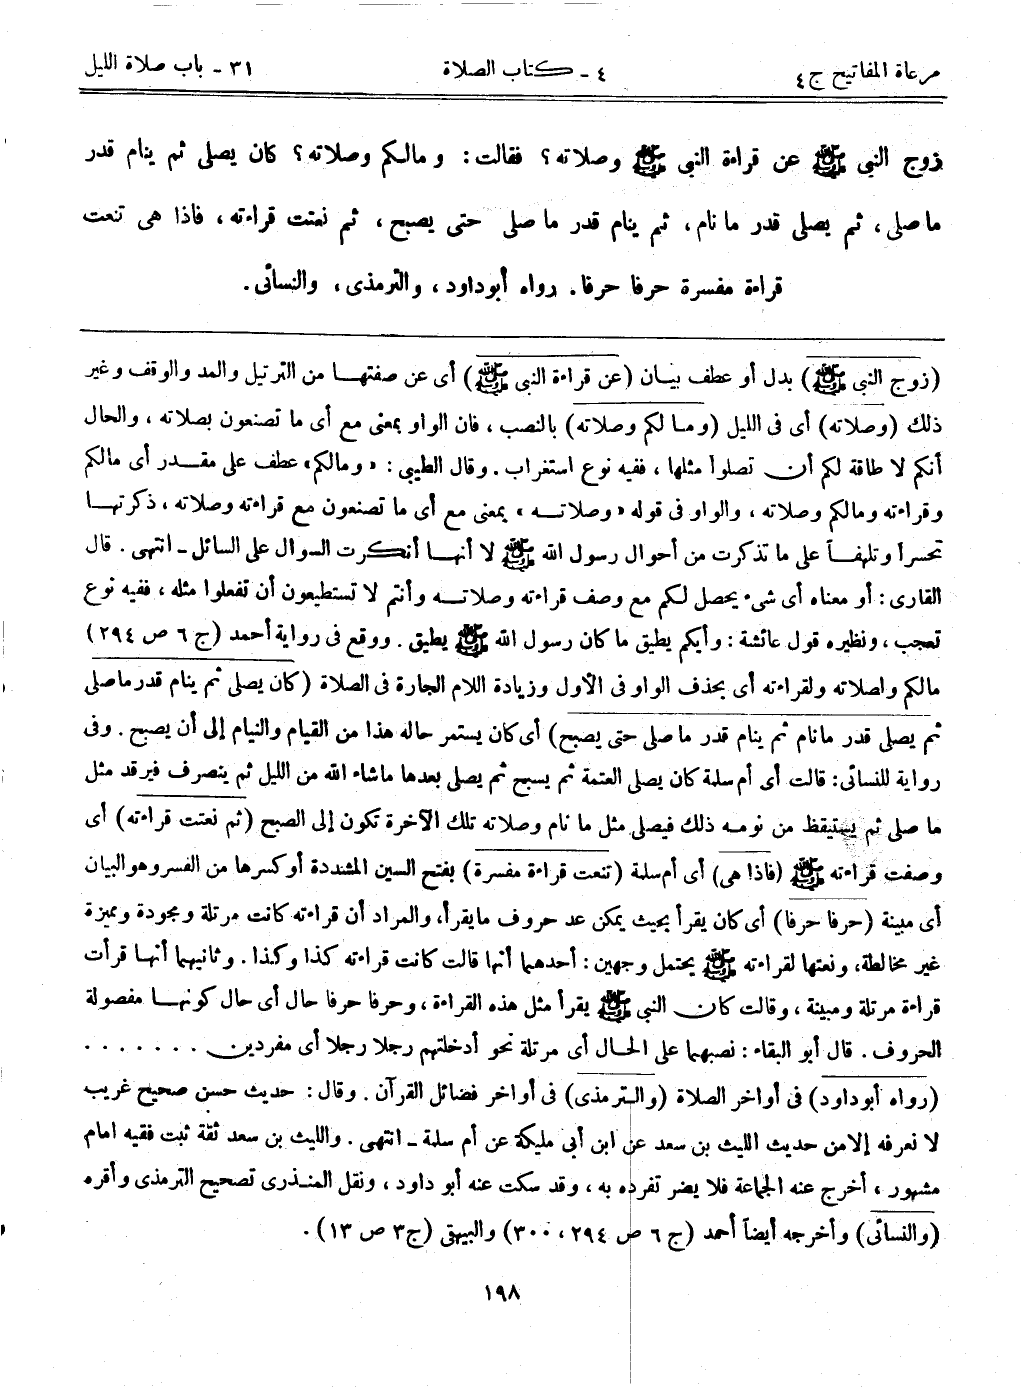 مرعاة المفاتيح ج ٤
٤ - كتاب الصلاة
٣١ - باب صلاة الليل
زوج النبى ﷺ عن قراءة النبى ﷺ وصلاته؟ فقالت: ومالكم وصلاته؟ كان يصلى ثم ينام قدر
ما صلى، ثم يصلى قدر ما نام، ثم ينام قدر ما صلى حتى يصبح، ثم نعتت قراءته، فاذا هى تنعت
قراءة مفسرة حرفا حرفا. رواه أبوداود، والترمذى، والنسائى.
(زوج النبى ﷺ) بدل أو عطف بيان (عن قراءة النبى ﷺ) أى عن صفتهـا من الترتيل والمد والوقف وغير
ذلك (وصلاته) أى فى الليل (ومـا لكم وصلاته) بالنصب، فان الواو بمعنى مع أى ما تصنعون بصلاته، والحال
أنكم لا طاقة لكم أن تصلوا مثلها، ففيه نوع استغراب. وقال الطيبى: «ومالكم» عطف على مقـدر أى مالكم
وقراءته ومالكم وصلاته، والواو فى قوله «وصلاتـه» بمعنى مع أى ما تصنعون مع قراءته وصلاته، ذكرتهـا
تحسراً وتلهفـاً على ما تذكرت من أحوال رسول الله ﷺ لا أنهـا أنكرت السوال على السائل - انتهى. قال
القارى: أو معناه أى شىء يحصل لكم مع وصف قراءته وصلاتـه وأنتم لا تستطيعون أن تفعلوا مثله، ففيه نوع
تعجب، ونظيره قول عائشة: وأيكم يطيق ما كان رسول الله ﷺ يطيق. ووقع فى رواية أحمد (ج ٦ ص ٢٩٤)
مالكم ولصلاته ولقراءته أى بحذف الواو فى الأول وزيادة اللام الجارة فى الصلاة (كان يصلى ثم ينام قدر ما صلى
ثم يصلى قدر ما نام ثم ينام قدر ما صلى حتى يصبح) أى كان يستمر حاله هذا من القيام والنيام إلى أن يصبح. وفى
رواية للنسائى: قالت أى أم سلمة كان يصلى العتمة ثم يسبح ثم يصلى بعدها ما شاء الله من الليل ثم ينصرف فيرقد مثل
ما صلى ثم يستيقظ من نومـه ذلك فيصلى مثل ما نام وصلاته تلك الآخرة تكون إلى الصبح (ثم نعتت قراءته) أى
وصفت قراءته ﷺ (فاذا هى) أى أم سلمة (تنعت قراءة مفسرة) بفتح السين المشددة أو كسرها من الفسر وهو البيان
أى مبينة (حرفا حرفا) أى كان يقرأ بحيث يمكن عد حروف ما يقرأ، والمراد أن قراءته كانت مرتلة ومجودة ومميزة
غير مخالطة، ونعتها لقراءته ﷺ يحتمل وجهين: أحدهما أنها قالت كانت قراءته كذا وكذا. وثانيهما أنهـا قرأت
قراءة مرتلة ومبينة، وقالت كان النبى ﷺ يقرأ مثل هذه القراءة، وحرفا حرفا حال أى حال كونهـا مفصولة
الحروف. قال أبو البقاء: نصبهما على الحـال أى مرتلة نحو أدخلتهم رجلا رجلا أى مفردين . . . . . . .
(رواه أبوداود) فى أواخر الصلاة (والترمذى) فى أواخر فضائل القرآن. وقال: حديث حسن صحيح غريب
لا نعرفه إلا من حديث الليث بن سعد عن ابن أبى مليكة عن أم سلمة - انتهى. والليث بن سعد ثقة ثبت فقيه امام
مشهور، أخرج عنه الجماعة فلا يضر تفرده به، وقد سكت عنه أبو داود، ونقل المنـذرى تصحيح الترمذى وأقره
(والنسائى) وأخرجه أيضاً أحمد (ج ٦ ص ٢٩٤، ٣٠٠) والبيهقى (ج ٣ ص ١٣).
١٩٨